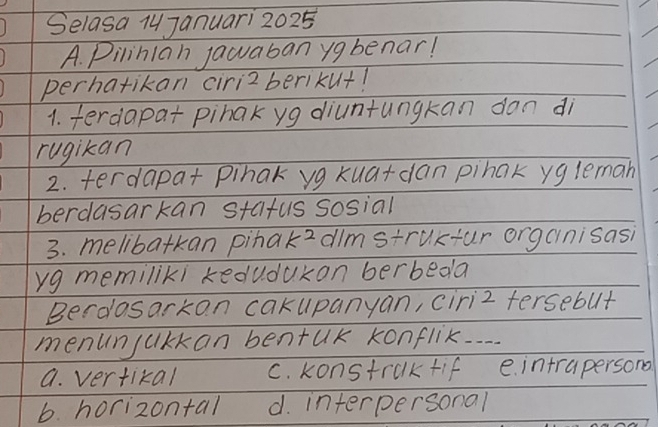 Selasa 14 Januari 2025
A. Pilihlah jawaban yg benar!
perhatikan ciri2 berikut!
1. terdapat pihak yg diuntungkan dan di
rugikan
2. terdapat pihak yg kuat dan pihak yg lemah
berdasarkan status sosial
3. melibatkan pihak2 dlm struktur organisasi
yg memiliki kedudukan berbeda
Berdasarkan cakupanyan, ciri2 tersebut
menunjukkan bentuk konflik....
a. vertikal c. konstruktif e. intrapersona
b. horizontal d. interpersonal